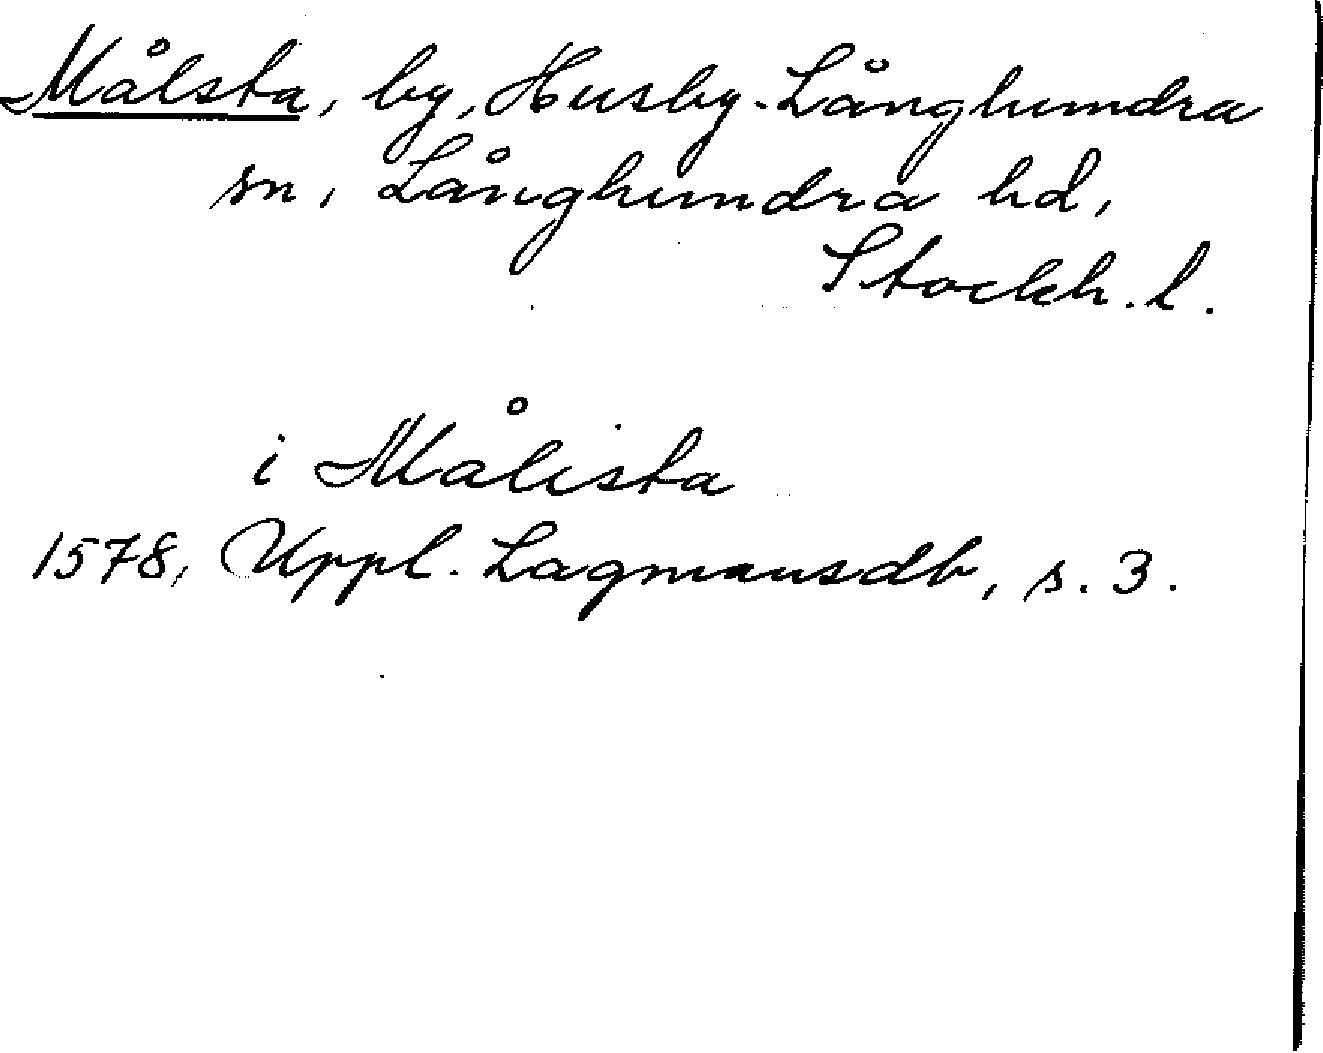 Målsta, by, Husby-Långhundra
sn, Långhundra hd,
Stockh. l.
i Målista
1578, Uppl. Lagmansdb, s. 3.